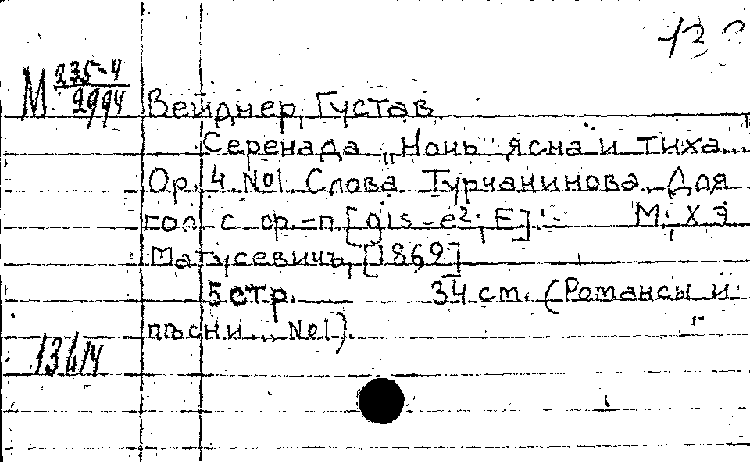 М 235-4
2994
Вейднер, Густав
Серенада „Ночь ясна и тиха...
Ор. 4 №1 Слова Турчанинова. Для
гол. с ф-п. [gis-e²; E]. М; ХЭ
Матусевичъ, [1869]
5 стр. 34 cm. (Романсы и
пѣсни... №1).